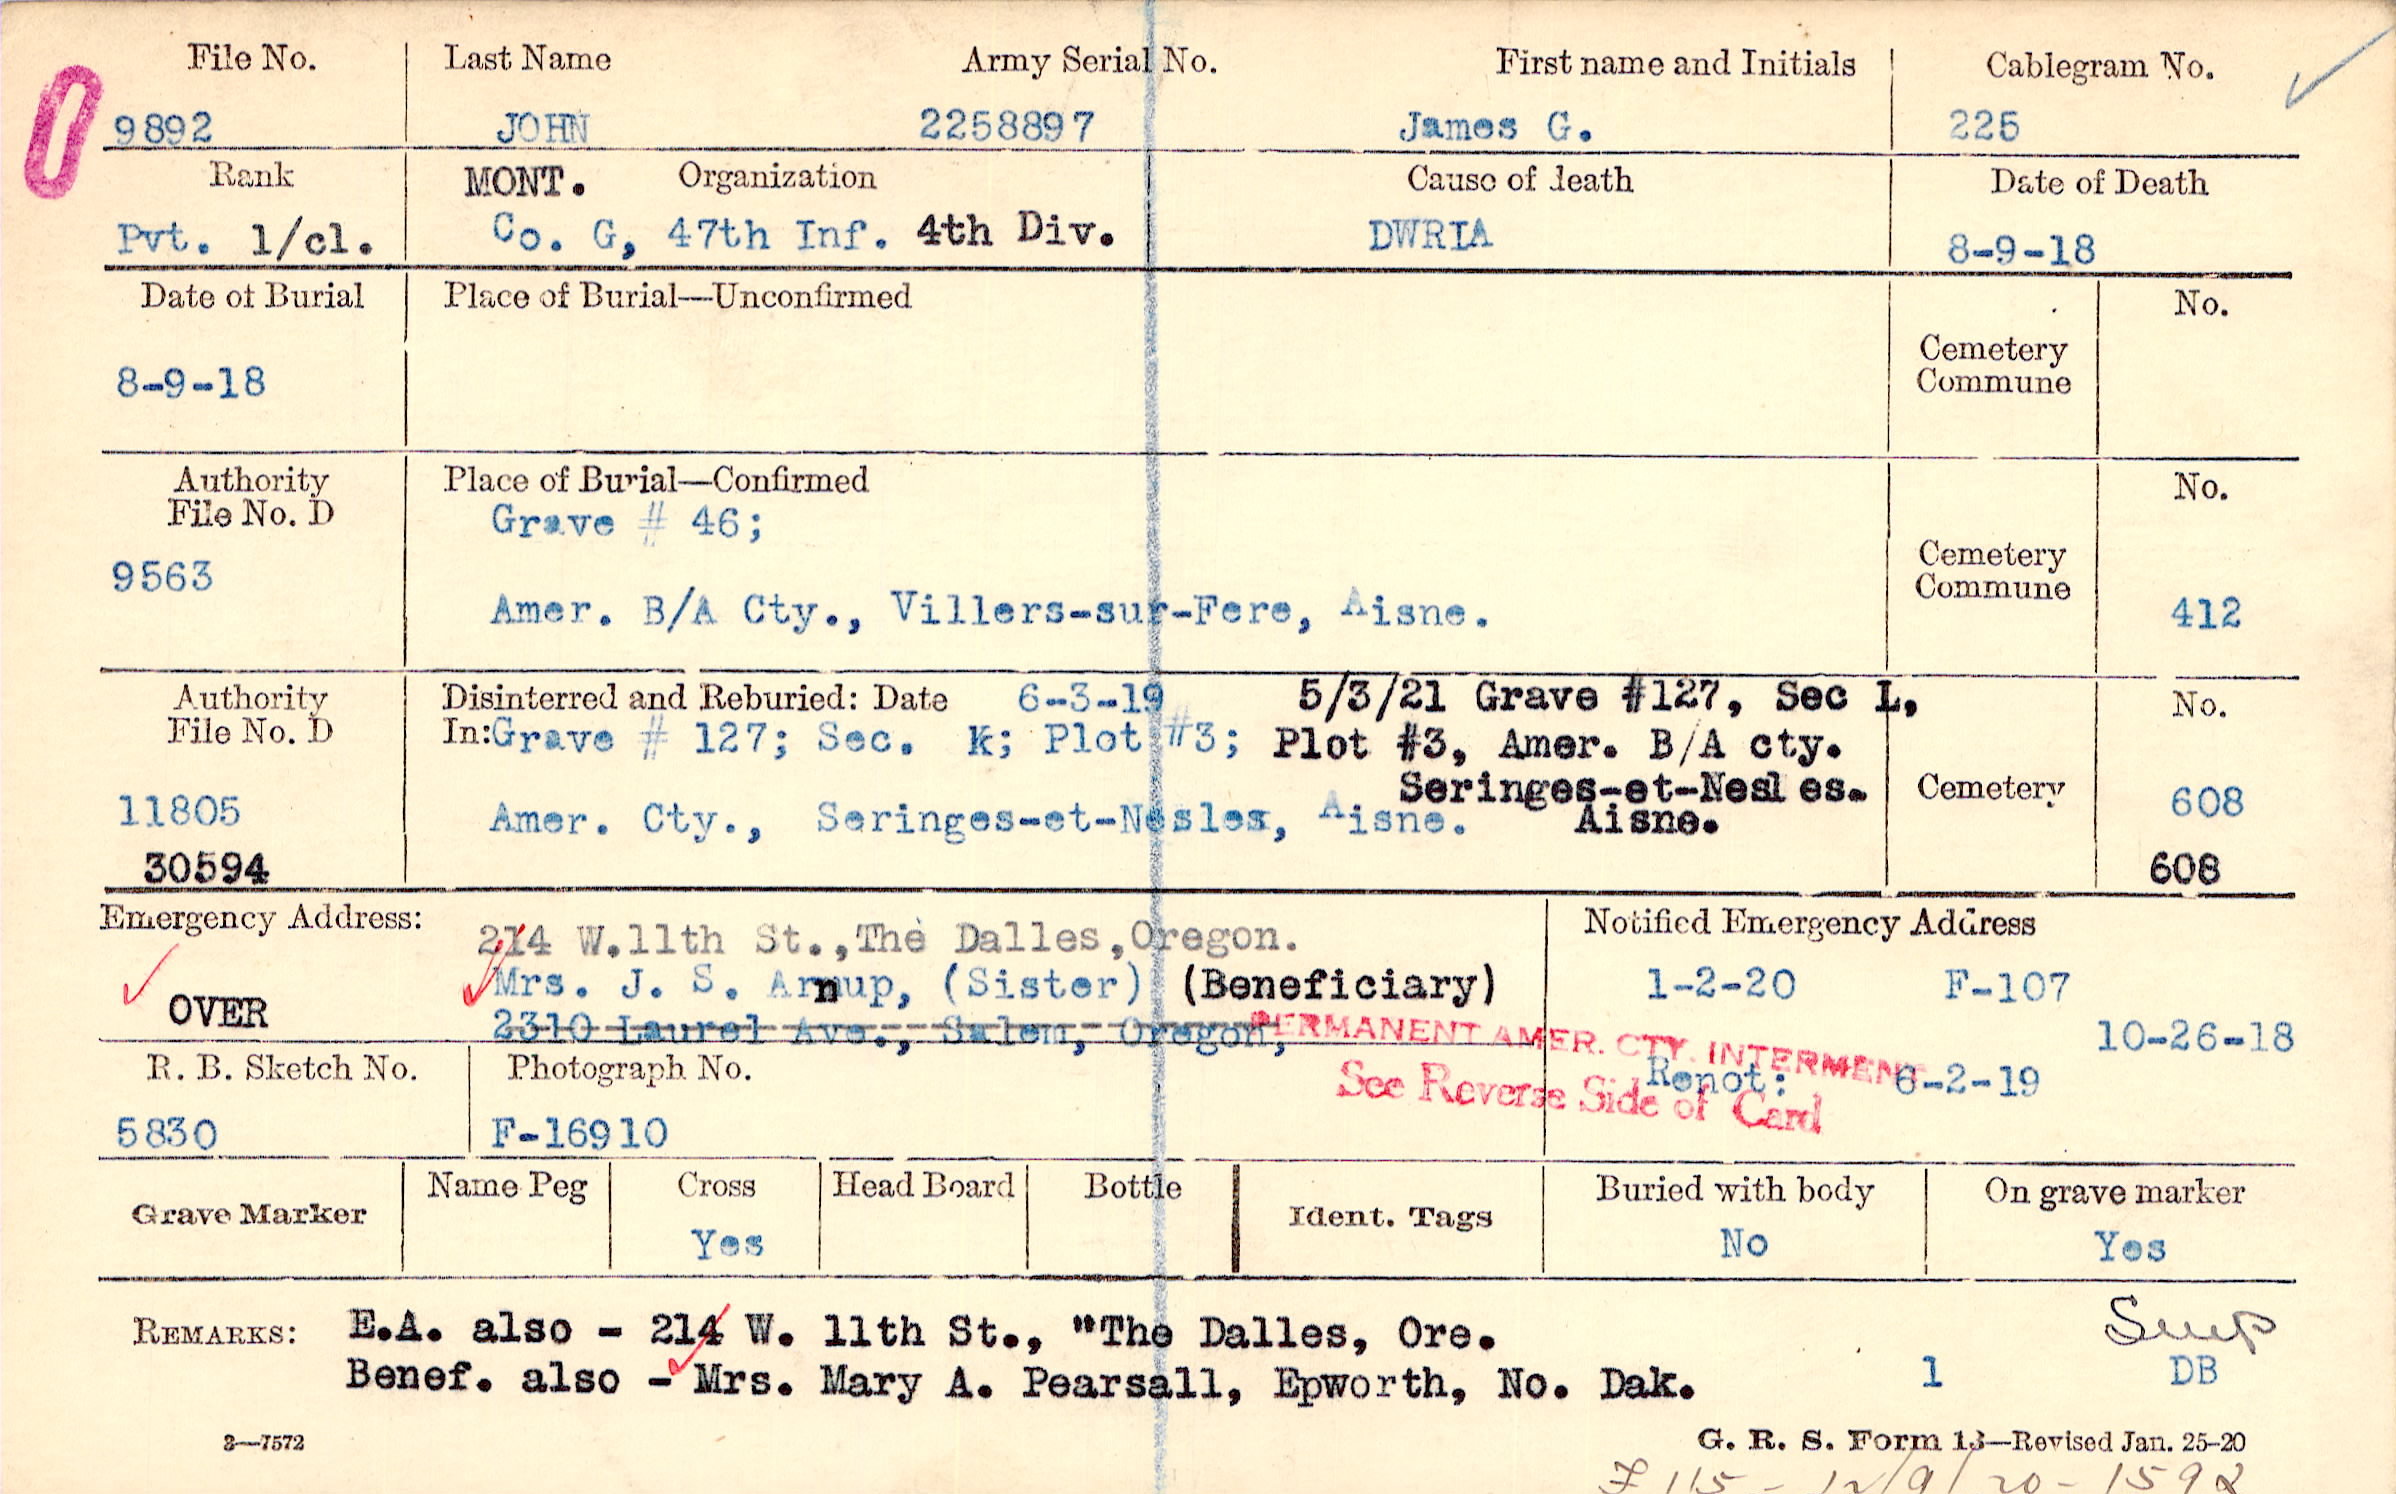 File No. Last Name Army Serial No. First name and Initials Cablegram No.
9892 JOHN 2258897 James G. 225
Rank MONT. Organization Cause of death Date of Death
Pvt. 1/cl. Co. G, 47th Inf. 4th Div. DWRIA 8-9-18
Date of Burial Place of Burial—Unconfirmed No.
Cemetery
Commune
8-9-18
Authority Place of Burial—Confirmed No.
File No. D Grave # 46;
9563 Cemetery
Commune
Amer. B/A Cty., Villers-sur-Fere, Aisne. 412
Authority Disinterred and Reburied: Date 6-3-19 5/3/21 Grave #127, Sec L, No.
File No. D In: Grave # 127; Sec. K; Plot #3; Plot #3, Amer. B/A cty.
Seringes-et-Nesles. Cemetery
11805 Amer. Cty., Seringes-et-Nesles, Aisne. Aisne. 608
30594 608
Emergency Address: 214 W.11th St.,The Dalles,Oregon. Notified Emergency Address
Mrs. J. S. Arnup, (Sister) (Beneficiary) 1-2-20 F-107
OVER 2310 Laurel Ave., Salem, Oregon, 10-26-18
PERMANENT AMER. CTY. INTERMENT
R. B. Sketch No. Photograph No. See Reverse Side of Card Renot: 6-2-19
5830 F-16910
Grave Marker Name Peg Cross Head Board Bottle Ident. Tags Buried with body On grave marker
Yes No Yes
REMARKS: E.A. also - 214 W. 11th St., "The Dalles, Ore.
Benef. also - Mrs. Mary A. Pearsall, Epworth, No. Dak. 1 DB
3—7572 G. R. S. Form 13—Revised Jan. 25-20
F 115 - 12/9/20 - 1592